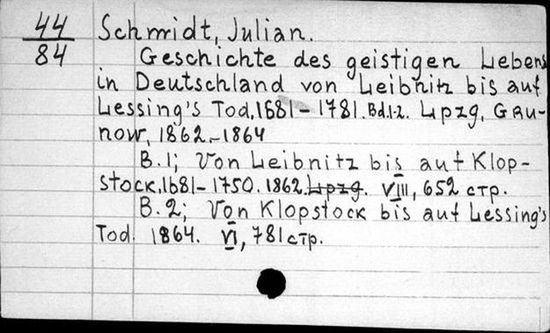 44 Schmidt, Julian.
84 Geschichte des geistigen Lebens
in Deutschland von Leibnitz bis auf
Lessing's Tod, 1681-1781. Bd.1-2. Lpzg, Gru-
now, 1862-1864
B. 1; Von Leibnitz bis auf Klop-
stock, 1681-1750. 1862. Lpzg. VIII, 652 стр.
B. 2; Von Klopstock bis auf Lessing's
Tod. 1864. VI, 781 стр.